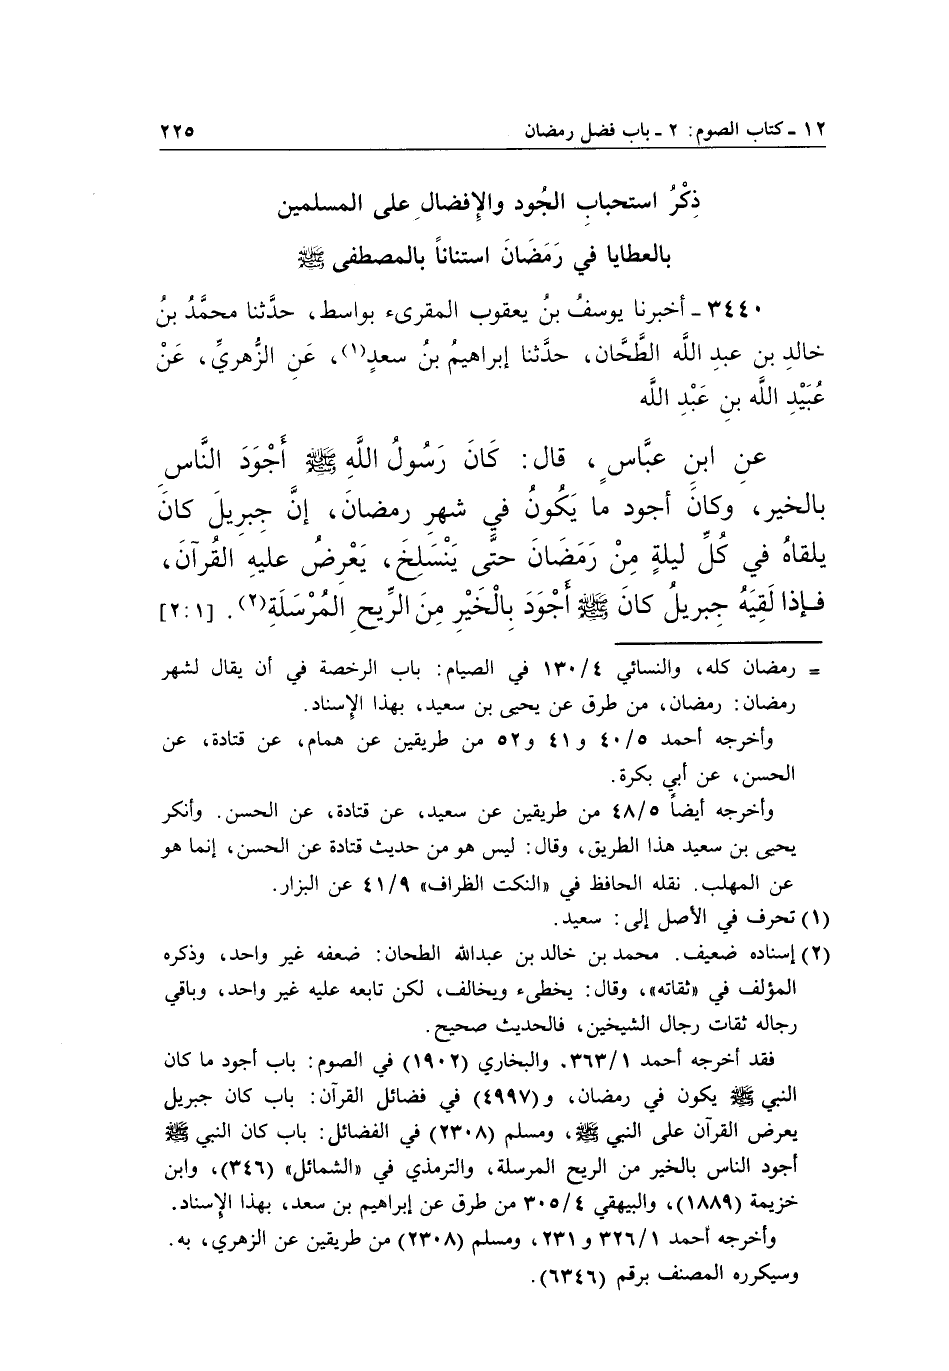 ١٢ - كتاب الصوم: ٢ - باب فضل رمضان ٢٢٥
ذِكْرُ استحبابِ الجُود والإفضالِ على المسلمين
بالعطايا في رَمَضَانَ استناناً بالمصطفى ﷺ
٣٤٤٠ - أخبرنا يوسفُ بنُ يعقوب المقرىء بواسط، حدَّثنا محمَّدُ بنُ
خالدِ بن عبدِ اللَّه الطَّحَّان، حدَّثنا إبراهيمُ بنُ سعدٍ(١)، عَنِ الزُّهريِّ، عَنْ
عُبَيْدِ اللَّه بنِ عَبْدِ اللَّه
عنِ ابنِ عبَّاسٍ، قال: كَانَ رَسُولُ اللَّهِ ﷺ أَجْوَدَ النَّاسِ
بالخير، وكانَ أجود ما يَكُونُ في شهرِ رمضانَ، إنَّ جبريلَ كانَ
يلقاهُ في كُلِّ ليلةٍ مِنْ رَمَضَانَ حتَّى يَنْسَلِخَ، يَعْرِضُ عليه القُرآنَ،
فإذا لَقِيَهُ جبريلُ كانَ ﷺ أَجْوَدَ بِالْخَيْرِ مِنَ الرِّيحِ المُرْسَلَةِ(٢). [٢:١]
= رمضان كله، والنسائي ١٣٠/٤ في الصيام: باب الرخصة في أن يقال لشهر
رمضان: رمضان، من طرق عن يحيى بن سعيد، بهذا الإسناد.
وأخرجه أحمد ٤٠/٥ و٤١ و٥٢ من طريقين عن همام، عن قتادة، عن
الحسن، عن أبي بكرة.
وأخرجه أيضاً ٤٨/٥ من طريقين عن سعيد، عن قتادة، عن الحسن. وأنكر
يحيى بن سعيد هذا الطريق، وقال: ليس هو من حديث قتادة عن الحسن، إنما هو
عن المهلب. نقله الحافظ في «النكت الظراف» ٤١/٩ عن البزار.
(١) تحرف في الأصل إلى: سعيد.
(٢) إسناده ضعيف. محمد بن خالد بن عبدالله الطحان: ضعفه غير واحد، وذكره
المؤلف في «ثقاته»، وقال: يخطىء ويخالف، لكن تابعه عليه غير واحد، وباقي
رجاله ثقات رجال الشيخين، فالحديث صحيح.
فقد أخرجه أحمد ٣٦٣/١. والبخاري (١٩٠٢) في الصوم: باب أجود ما كان
النبي ﷺ يكون في رمضان، و(٤٩٩٧) في فضائل القرآن: باب كان جبريل
يعرض القرآن على النبي ﷺ، ومسلم (٢٣٠٨) في الفضائل: باب كان النبي ﷺ
أجود الناس بالخير من الريح المرسلة، والترمذي في «الشمائل» (٣٤٦)، وابن
خزيمة (١٨٨٩)، والبيهقي ٣٠٥/٤ من طرق عن إبراهيم بن سعد، بهذا الإسناد.
وأخرجه أحمد ٣٢٦/١ و٢٣١، ومسلم (٢٣٠٨) من طريقين عن الزهري، به.
وسيكرره المصنف برقم (٦٣٤٦).